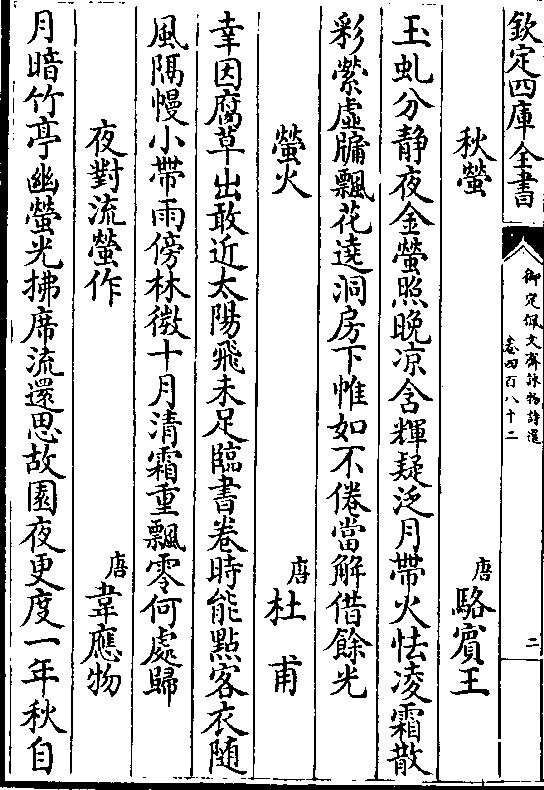 欽定四庫全書
御定佩文齋詠物詩選
卷四百八十二
二
秋螢
唐 駱賓王
玉虬分静夜金螢照晚凉含輝疑泛月帶火怯凌霜散
彩縈虛牖飄花遶洞房下帷如不倦當解借餘光
螢火
唐 杜甫
幸因腐草出敢近太陽飛未足臨書卷時能點客衣隨
風隔幔小帶雨傍林微十月清霜重飄零何處歸
夜對流螢作
唐 韋應物
月暗竹亭幽螢光拂席流還思故園夜更度一年秋自